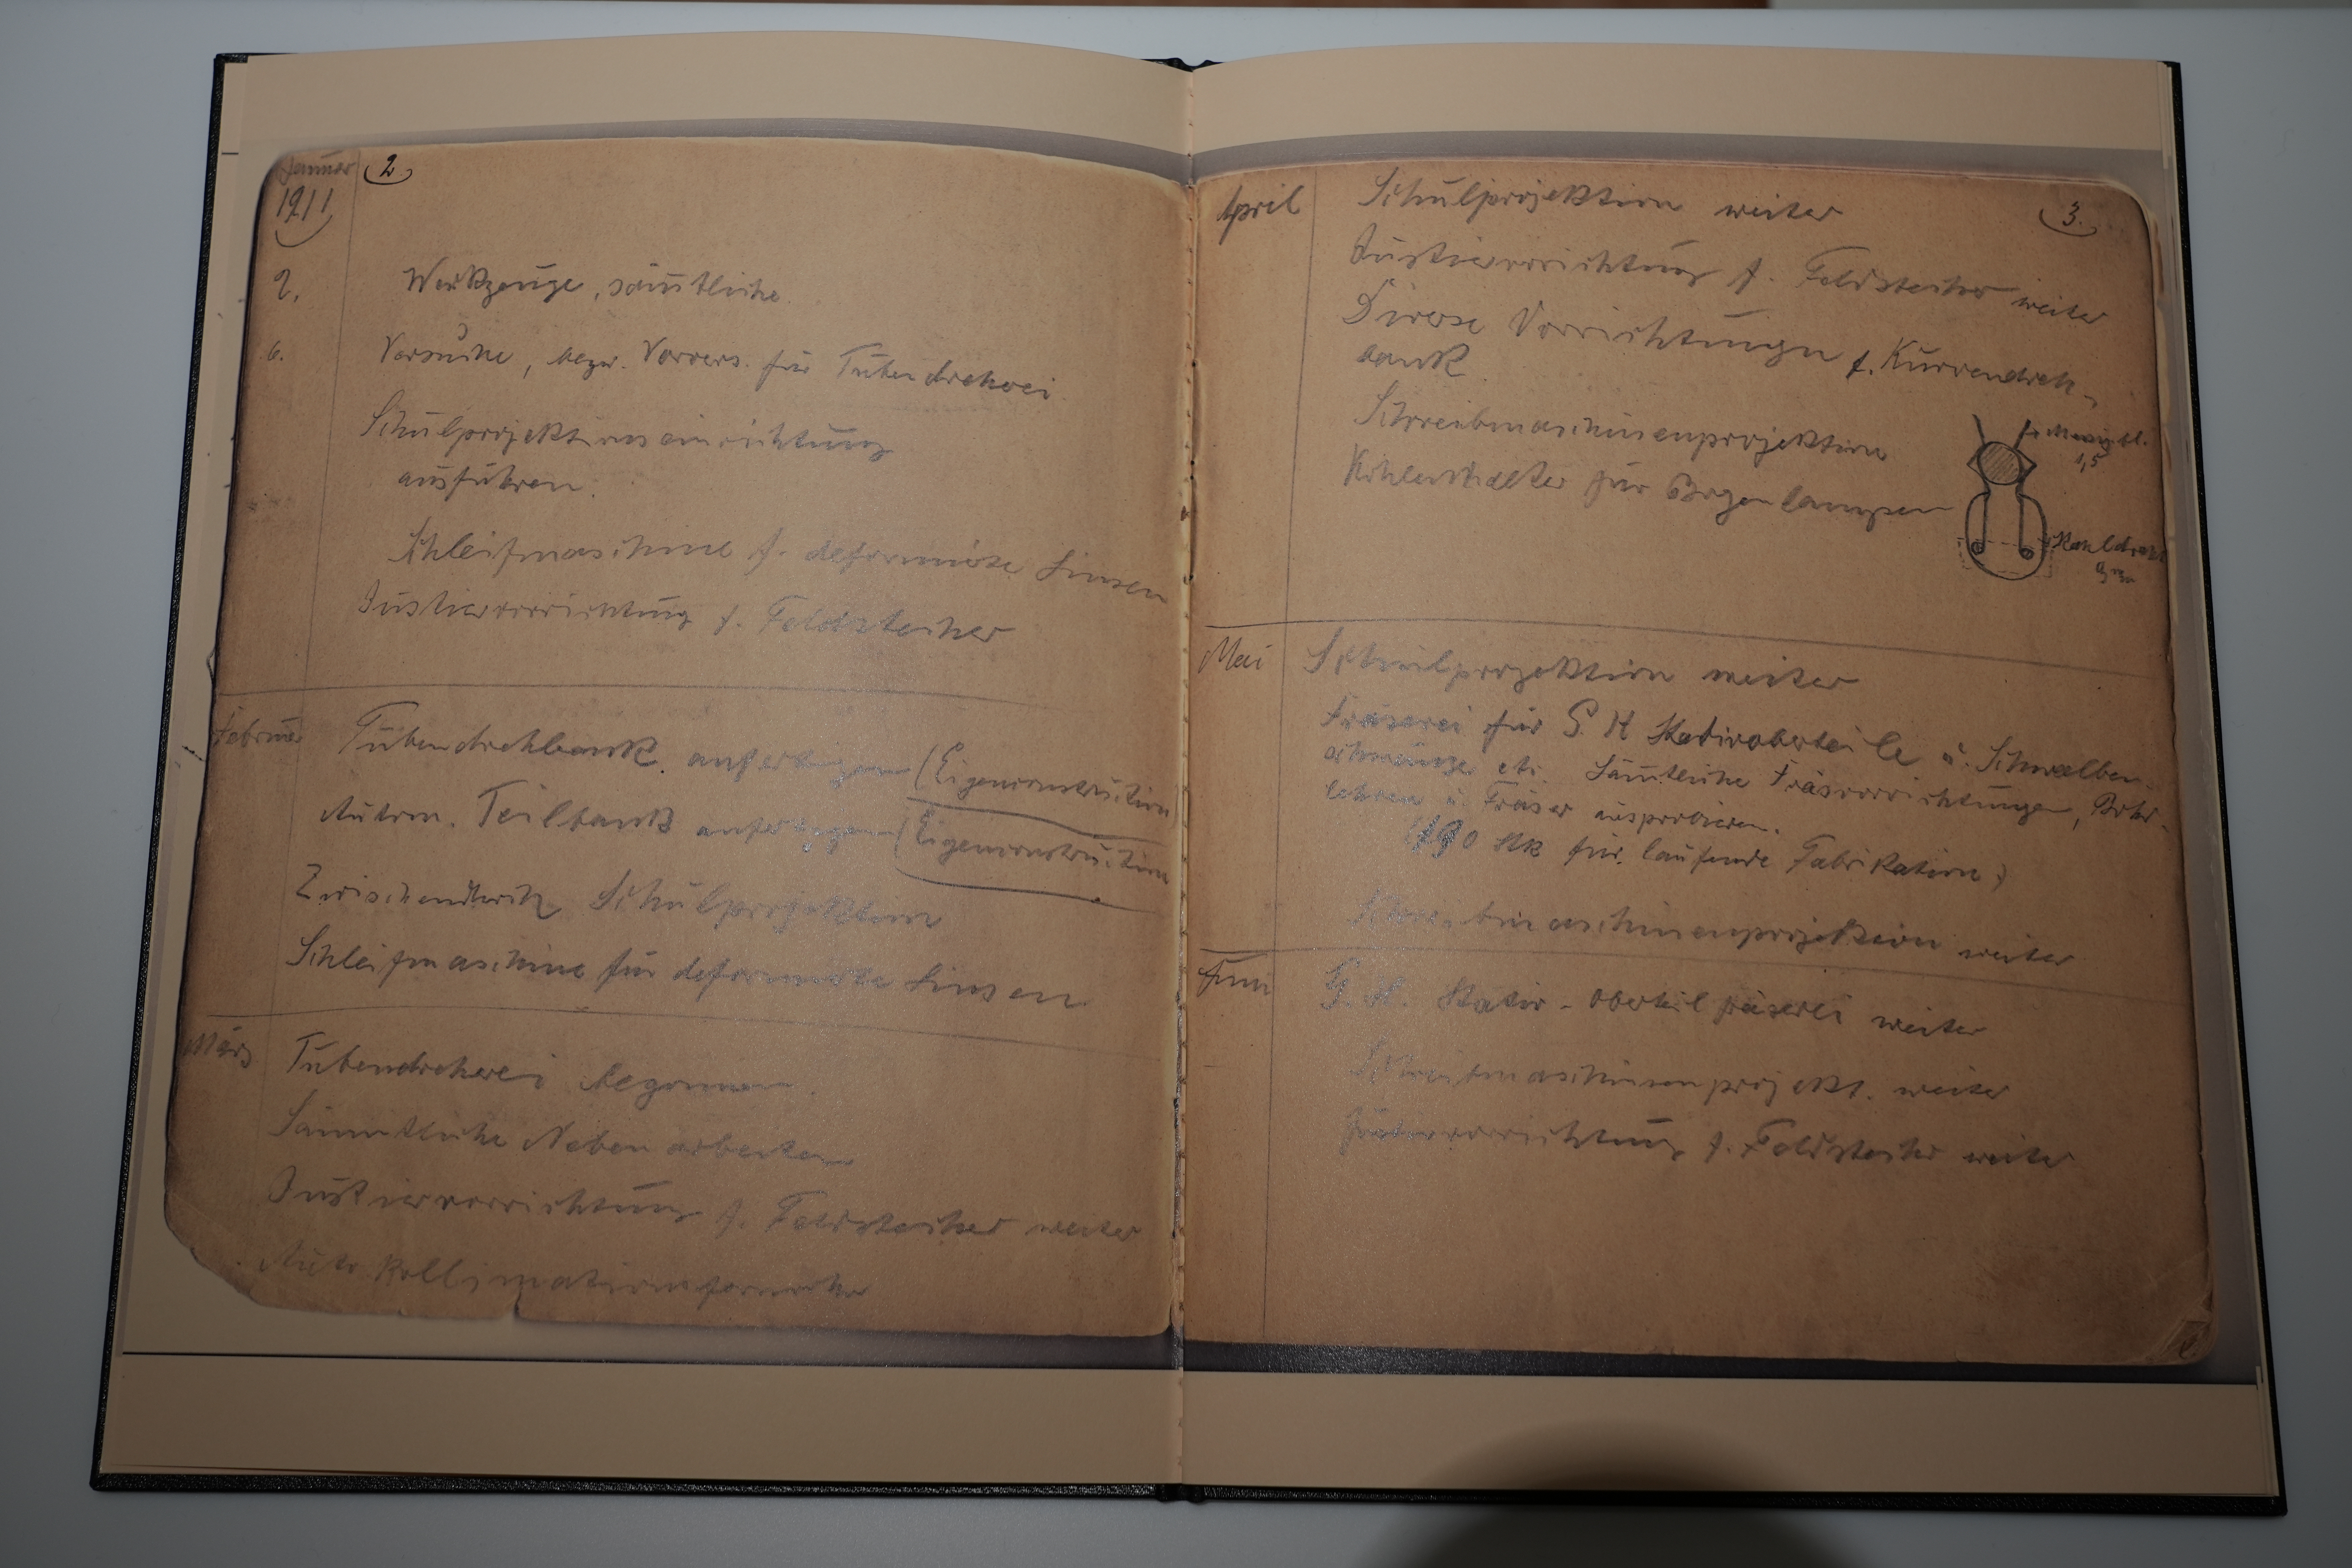 Januar
1911
2.
2. Werkzeuge, sämtliche.
6. Versuche, bezw. Vorvers. für Tubendreherei.
Schulprojektionseinrichtung
ausführen.
Schleifmaschine f. deformierte Linsen
Justiervorrichtung f. Feldstecher
Februar Tubendrehbank anfertigen (Eigenconstruction
Autom. Teilbank anfertigen (Eigenconstruction
Zwischendurch Schulprojektion
Schleifmaschine für deformierte Linsen
März Tubendreherei begonnen.
Sämmtliche Nebenarbeiten
Justiervorrichtung f. Feldstecher weiter
Auto Kollimationsfernrohr
3.
April Schulprojektion weiter
Justiervorrichtung f. Feldstecher weiter
Diverse Vorrichtungen f. Kurvendreh-
bank
Schreibmaschinenprojektion
Kohlenhalter für Bogenlampen
1,5
Mai Schulprojektion weiter
Fräserei für G. H Stativoberteile u. Schwalben
schwänze etc. Sämtliche Fräsvorrichtungen, Bohr-
lehren u. Fräser ausprobieren.
Stk für laufende Fabrikation)
Schreibmaschinenprojektion weiter
Juni G. H. Stativ-oberteil fräserei weiter
Schreibmaschinenprojekt. weiter
Justiervorrichtung f. Feldstecher weiter